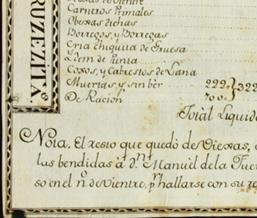 RUZEZITA.
Carneros Primales
Obexas dichas
Borregos, y Borregas
Cria chiquita de Gruesa
Idem de Punta
Coxos, y Cabrestos de Lana
Muertas y sin ber 222
De Racion 100
Total Liquido
Nota. El resto que quedó de Viexas,
las bendidas á Dn. Manuel de la Fuer
so en el no. de Vientre, pr. hallarse con su